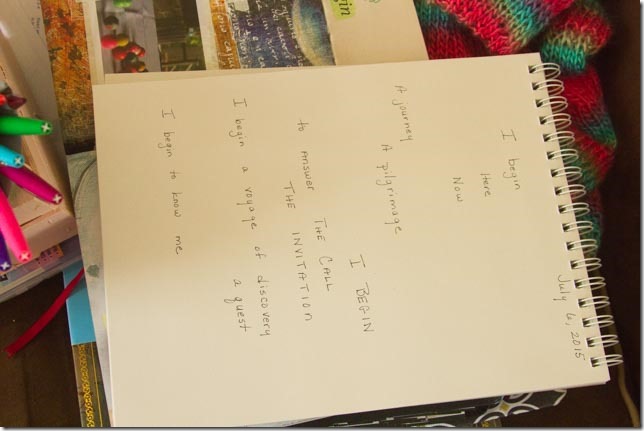 July 6, 2015
I begin
Here
Now
A journey
A pilgrimage
I BEGIN
to answer THE CALL
THE INVITATION
I begin a voyage of discovery
a quest
I begin to know me